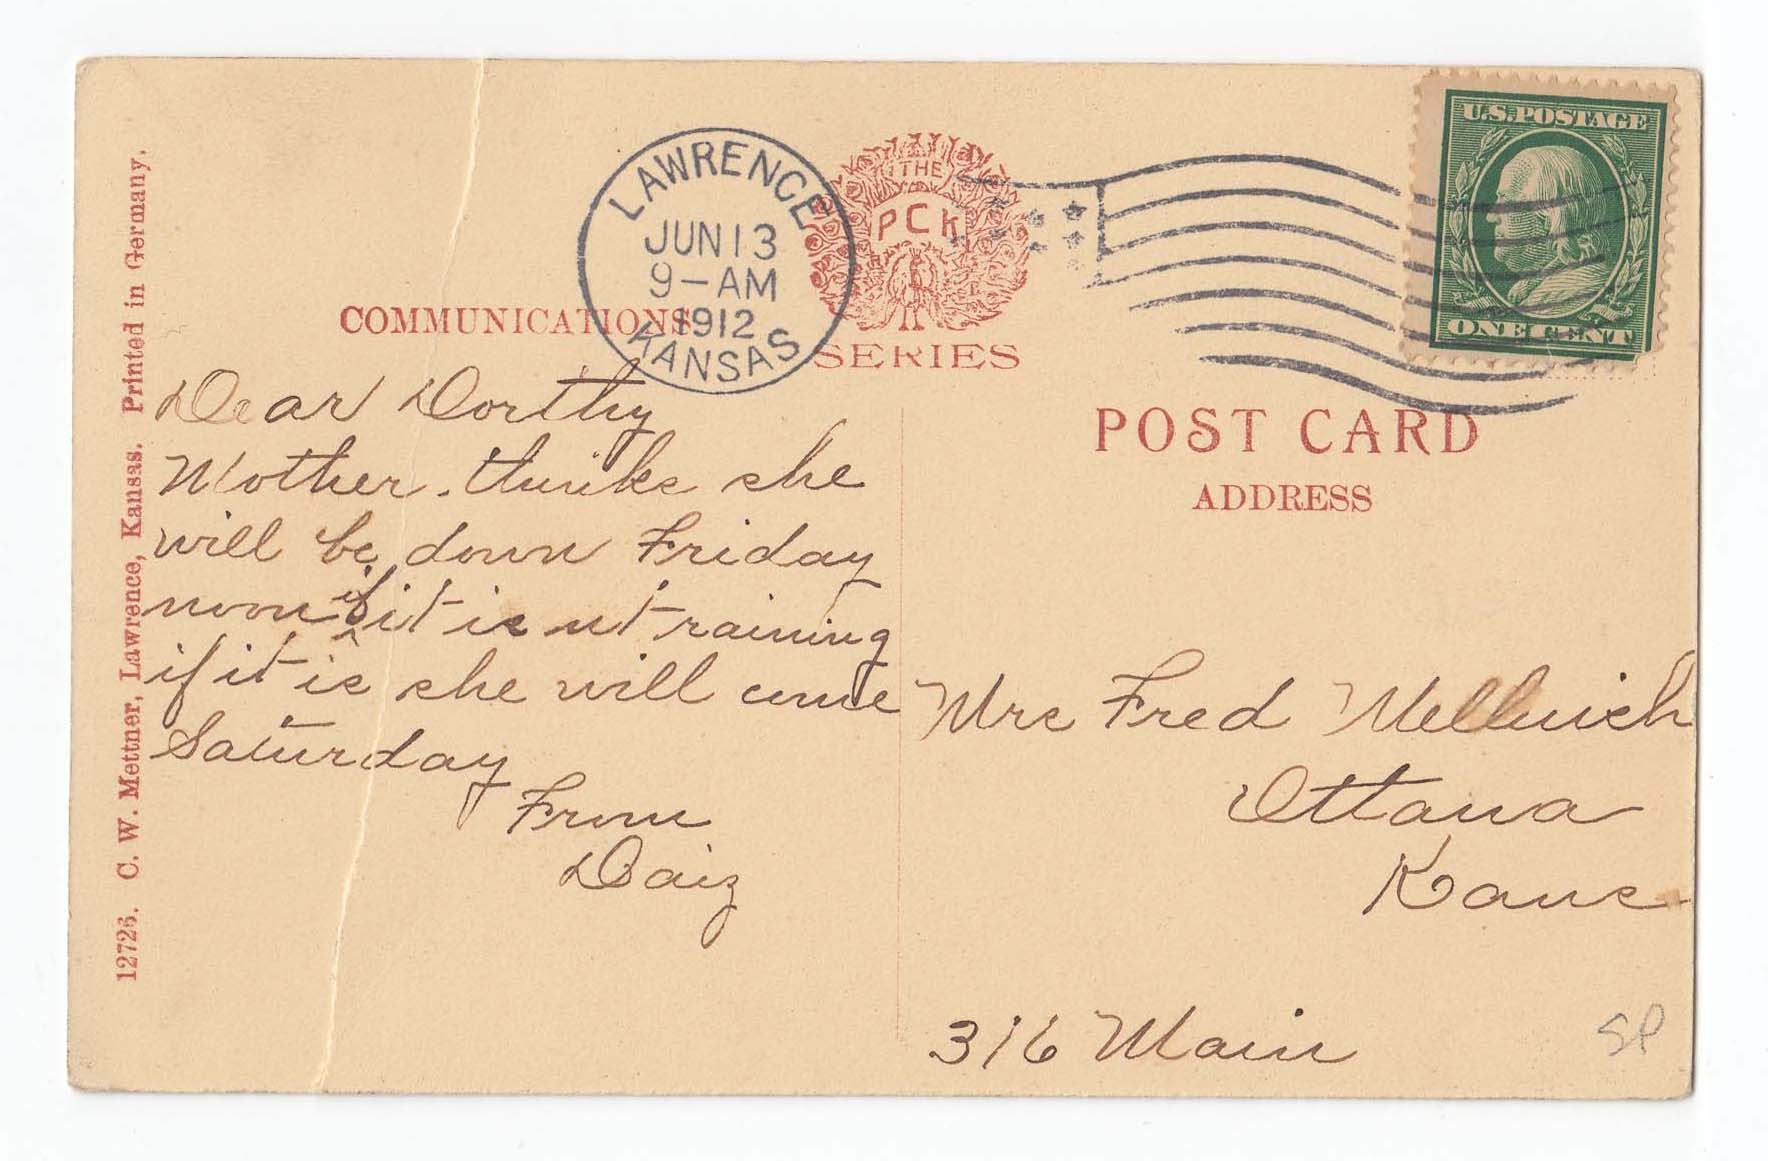 12726. C. W. Mettner, Lawrence, Kansas. Printed in Germany.
COMMUNICATIONS
LAWRENCE
JUN 13
9-AM
1912
KANSAS
THE
PCK
SERIES
U.S. POSTAGE
ONE CENT
POST CARD
ADDRESS
Dear Dorthy
Mother. thinks she
will be down Friday
noon if it is nt raining
if it is she will come
Saturday
From
Daiz
Mrs Fred
Ottawa
Kans
316 Main
SP